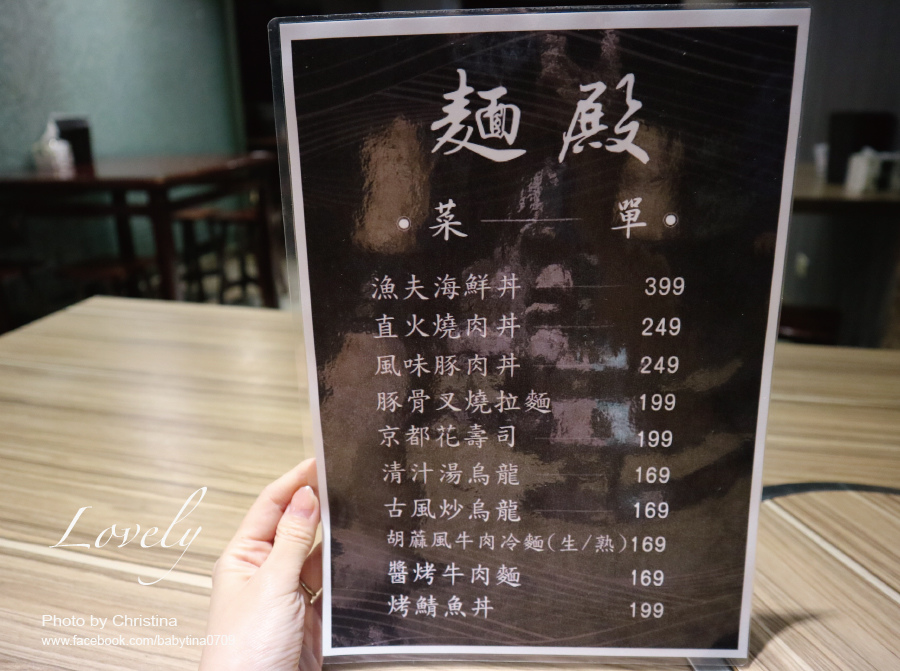 麵殿
菜單
漁夫海鮮丼 399
直火燒肉丼 249
風味豚肉丼 249
豚骨叉燒拉麵 199
京都花壽司 199
清汁湯烏龍 169
古風炒烏龍 169
胡蔴風牛肉冷麵(生/熟)169
醬烤牛肉麵 169
烤鯖魚丼 199
Lovely
Photo by Christina
www.facebook.com/babytina0709